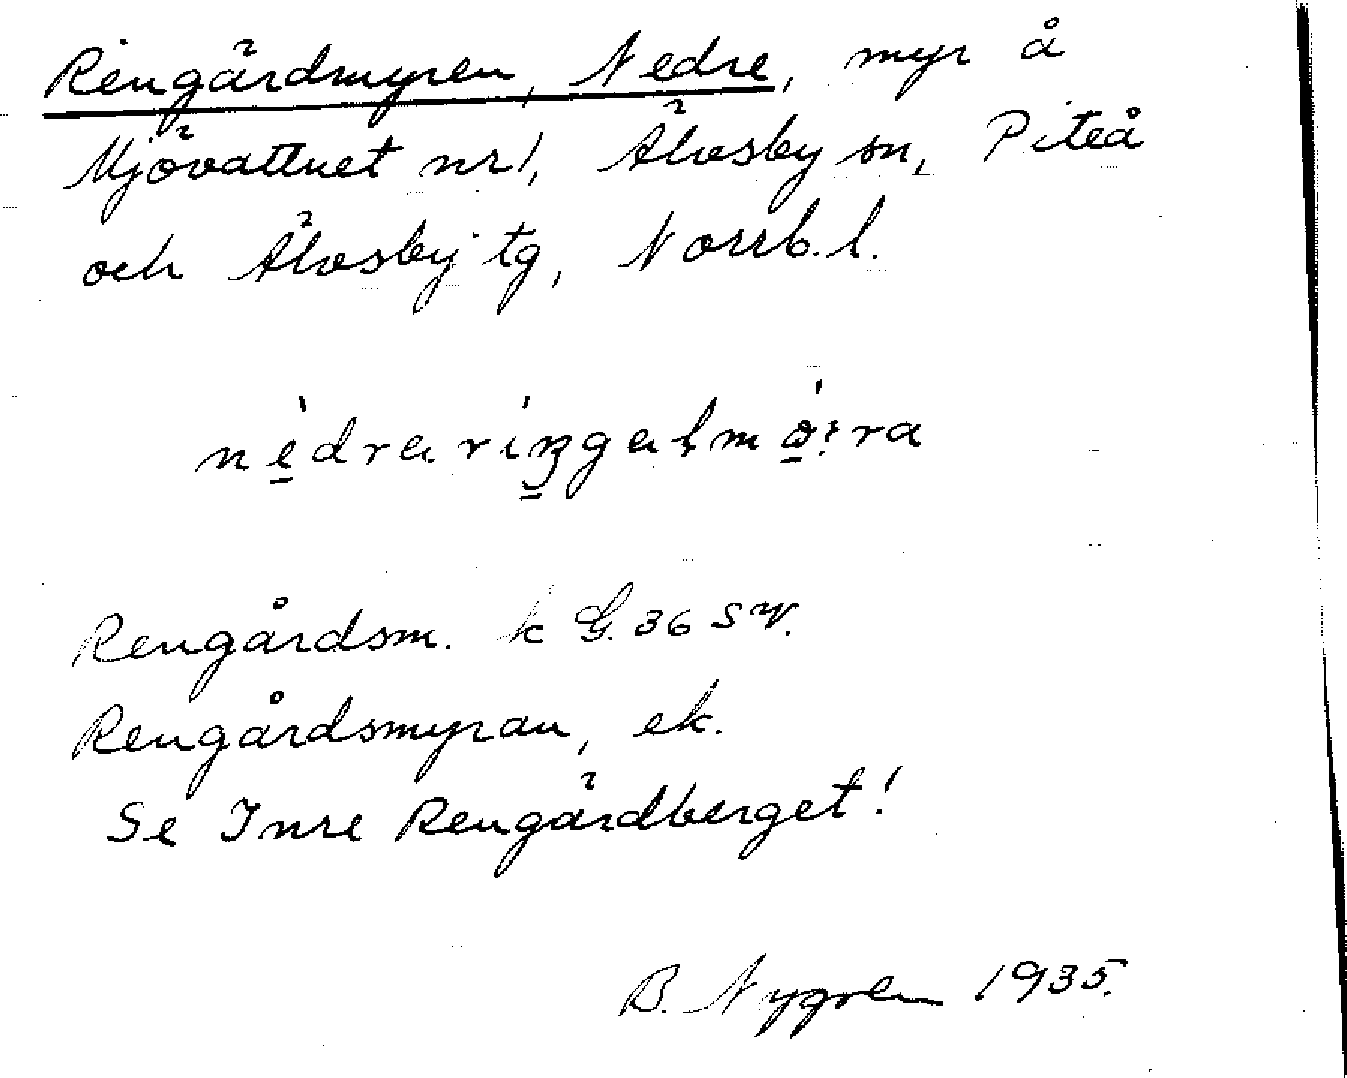 Rengårdmyren, Nedre, myr å
Mjövattnet nr 1, Älvsby sn, Piteå
och Älvsby tg, Norrb. l.
Rengårdsm. k G. 36 SV.
Rengårdsmyran, ek.
Se Inre Rengårdberget!
B. Nygren 1935.